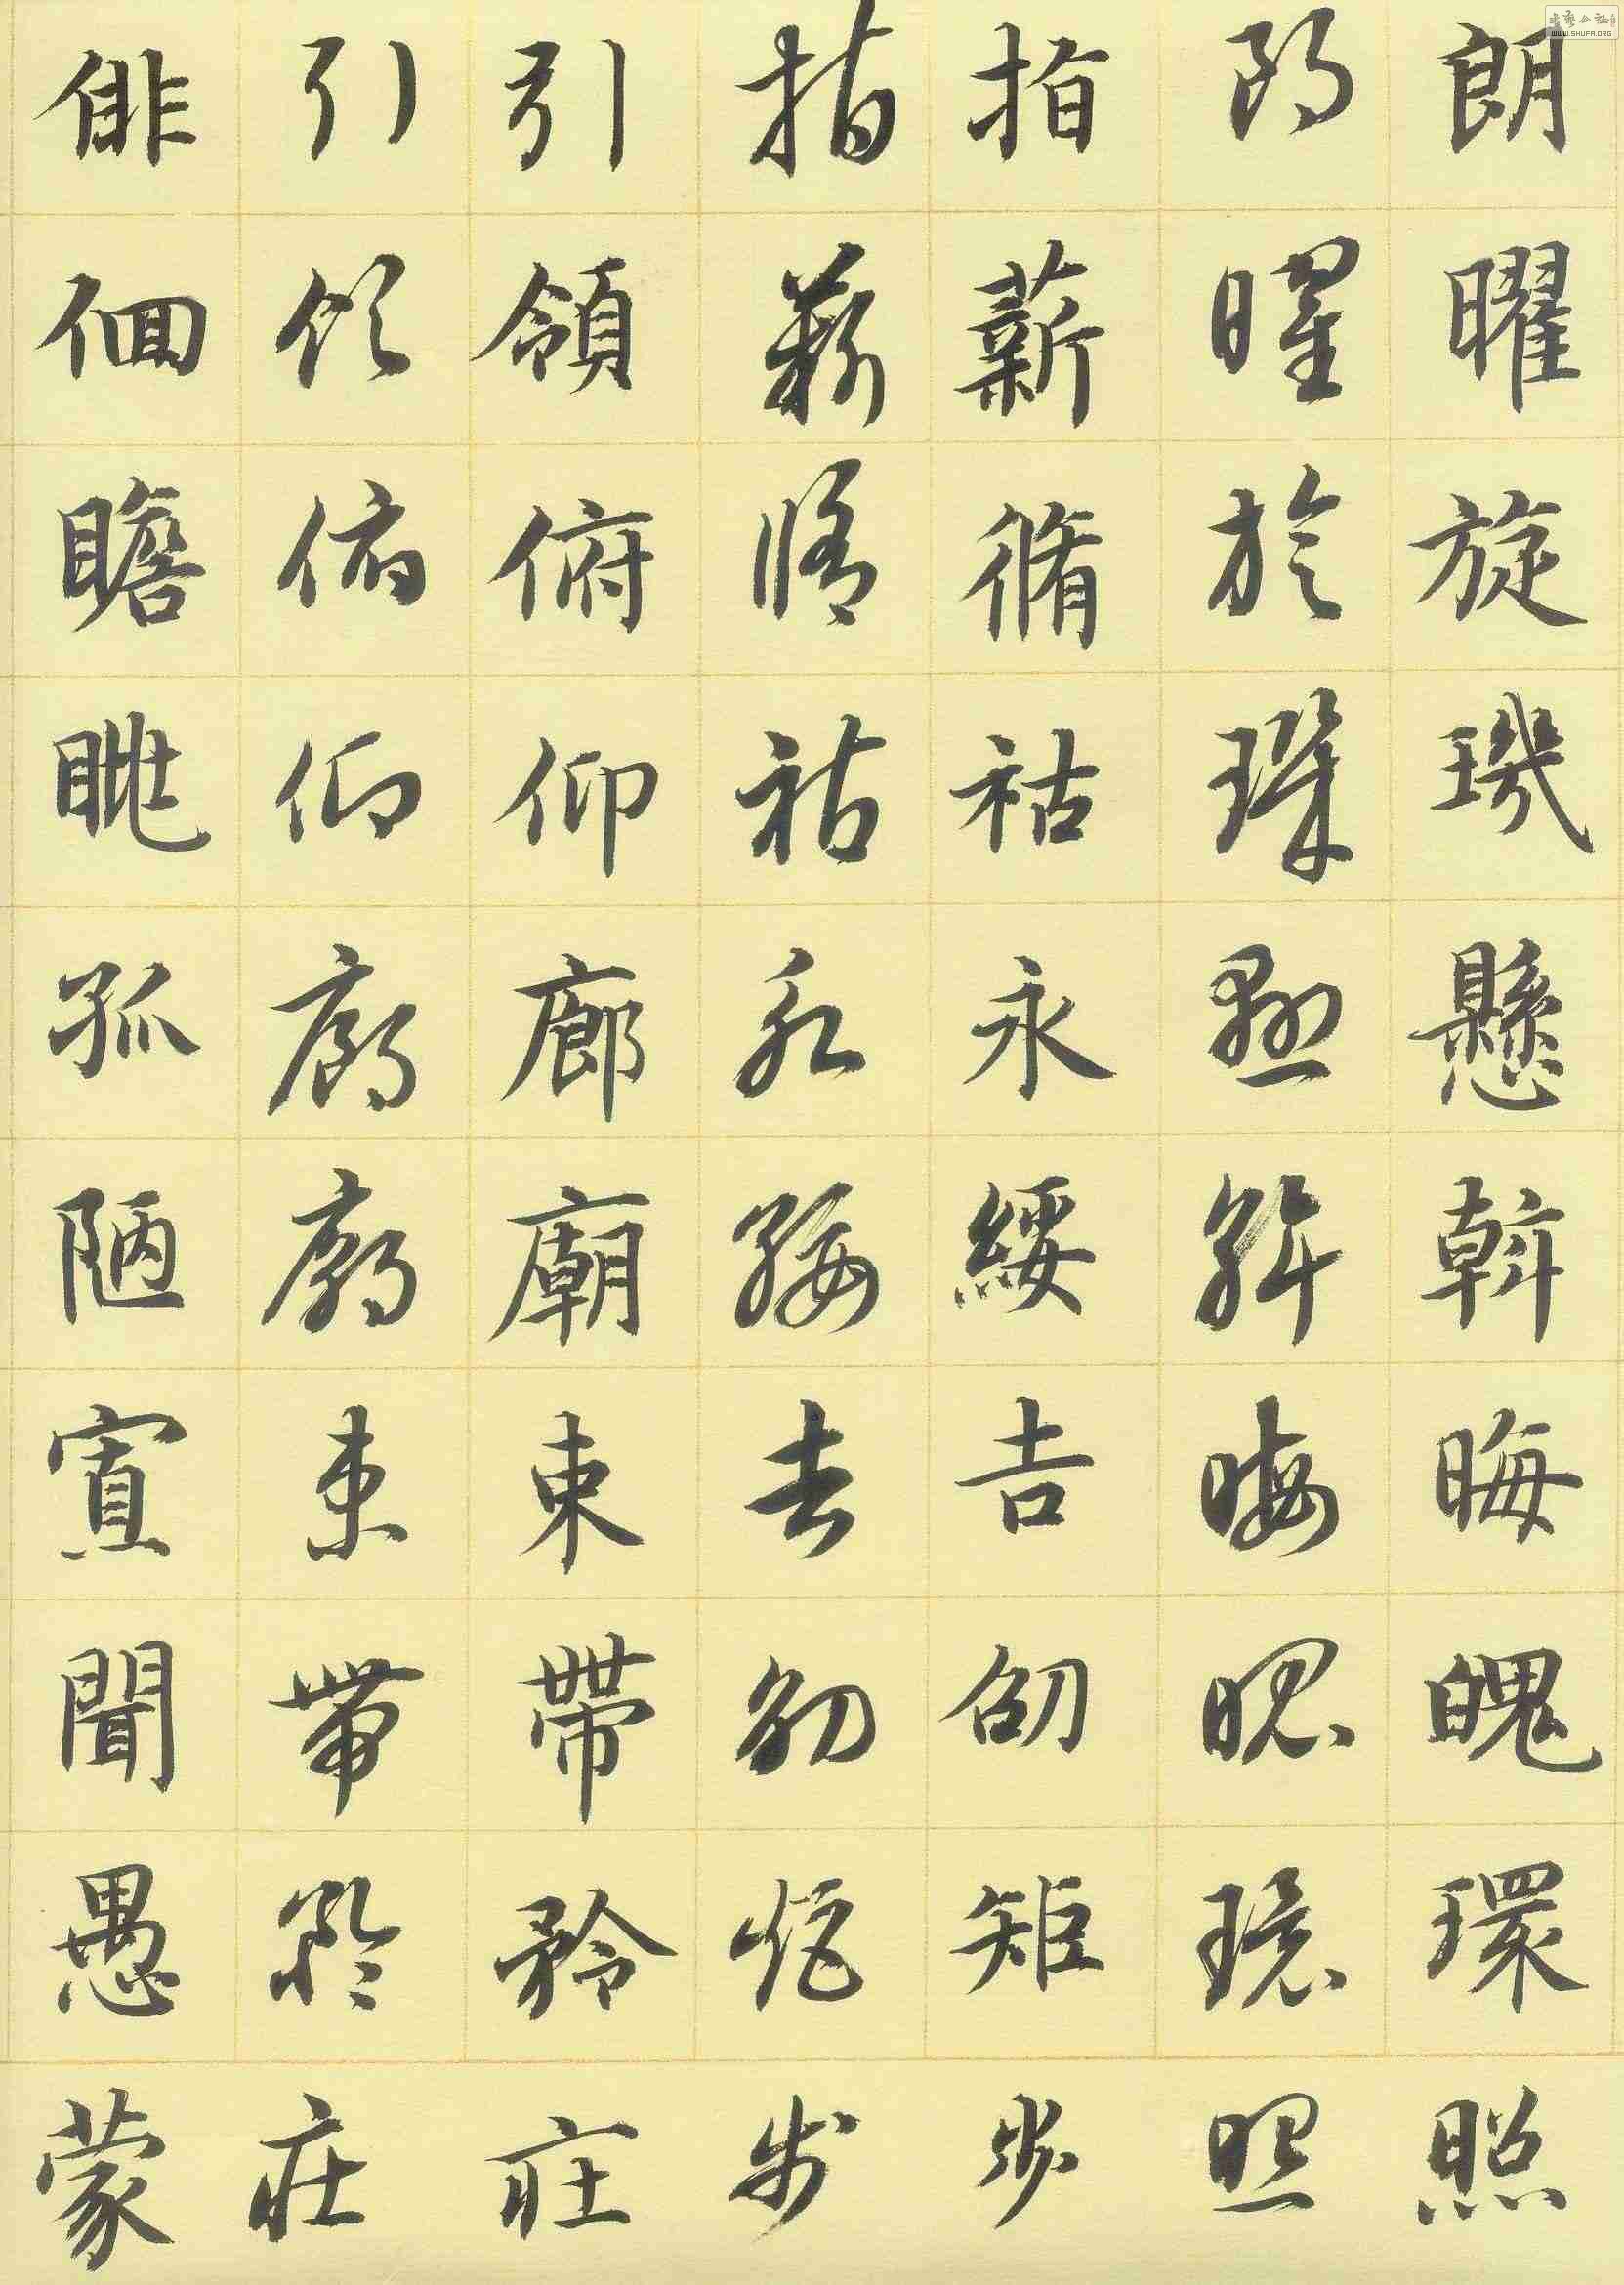 朗曜旋璣懸斡晦魄環照
朗曜旋璣懸斡晦魄環照
指薪脩祜永綏吉劭矩步
指薪脩祜永綏吉劭矩步
引領俯仰廊廟束帶矜莊
引領俯仰廊廟束帶矜莊
俳佪瞻眺孤陋寡聞愚蒙
WWW.SHUFA.ORG